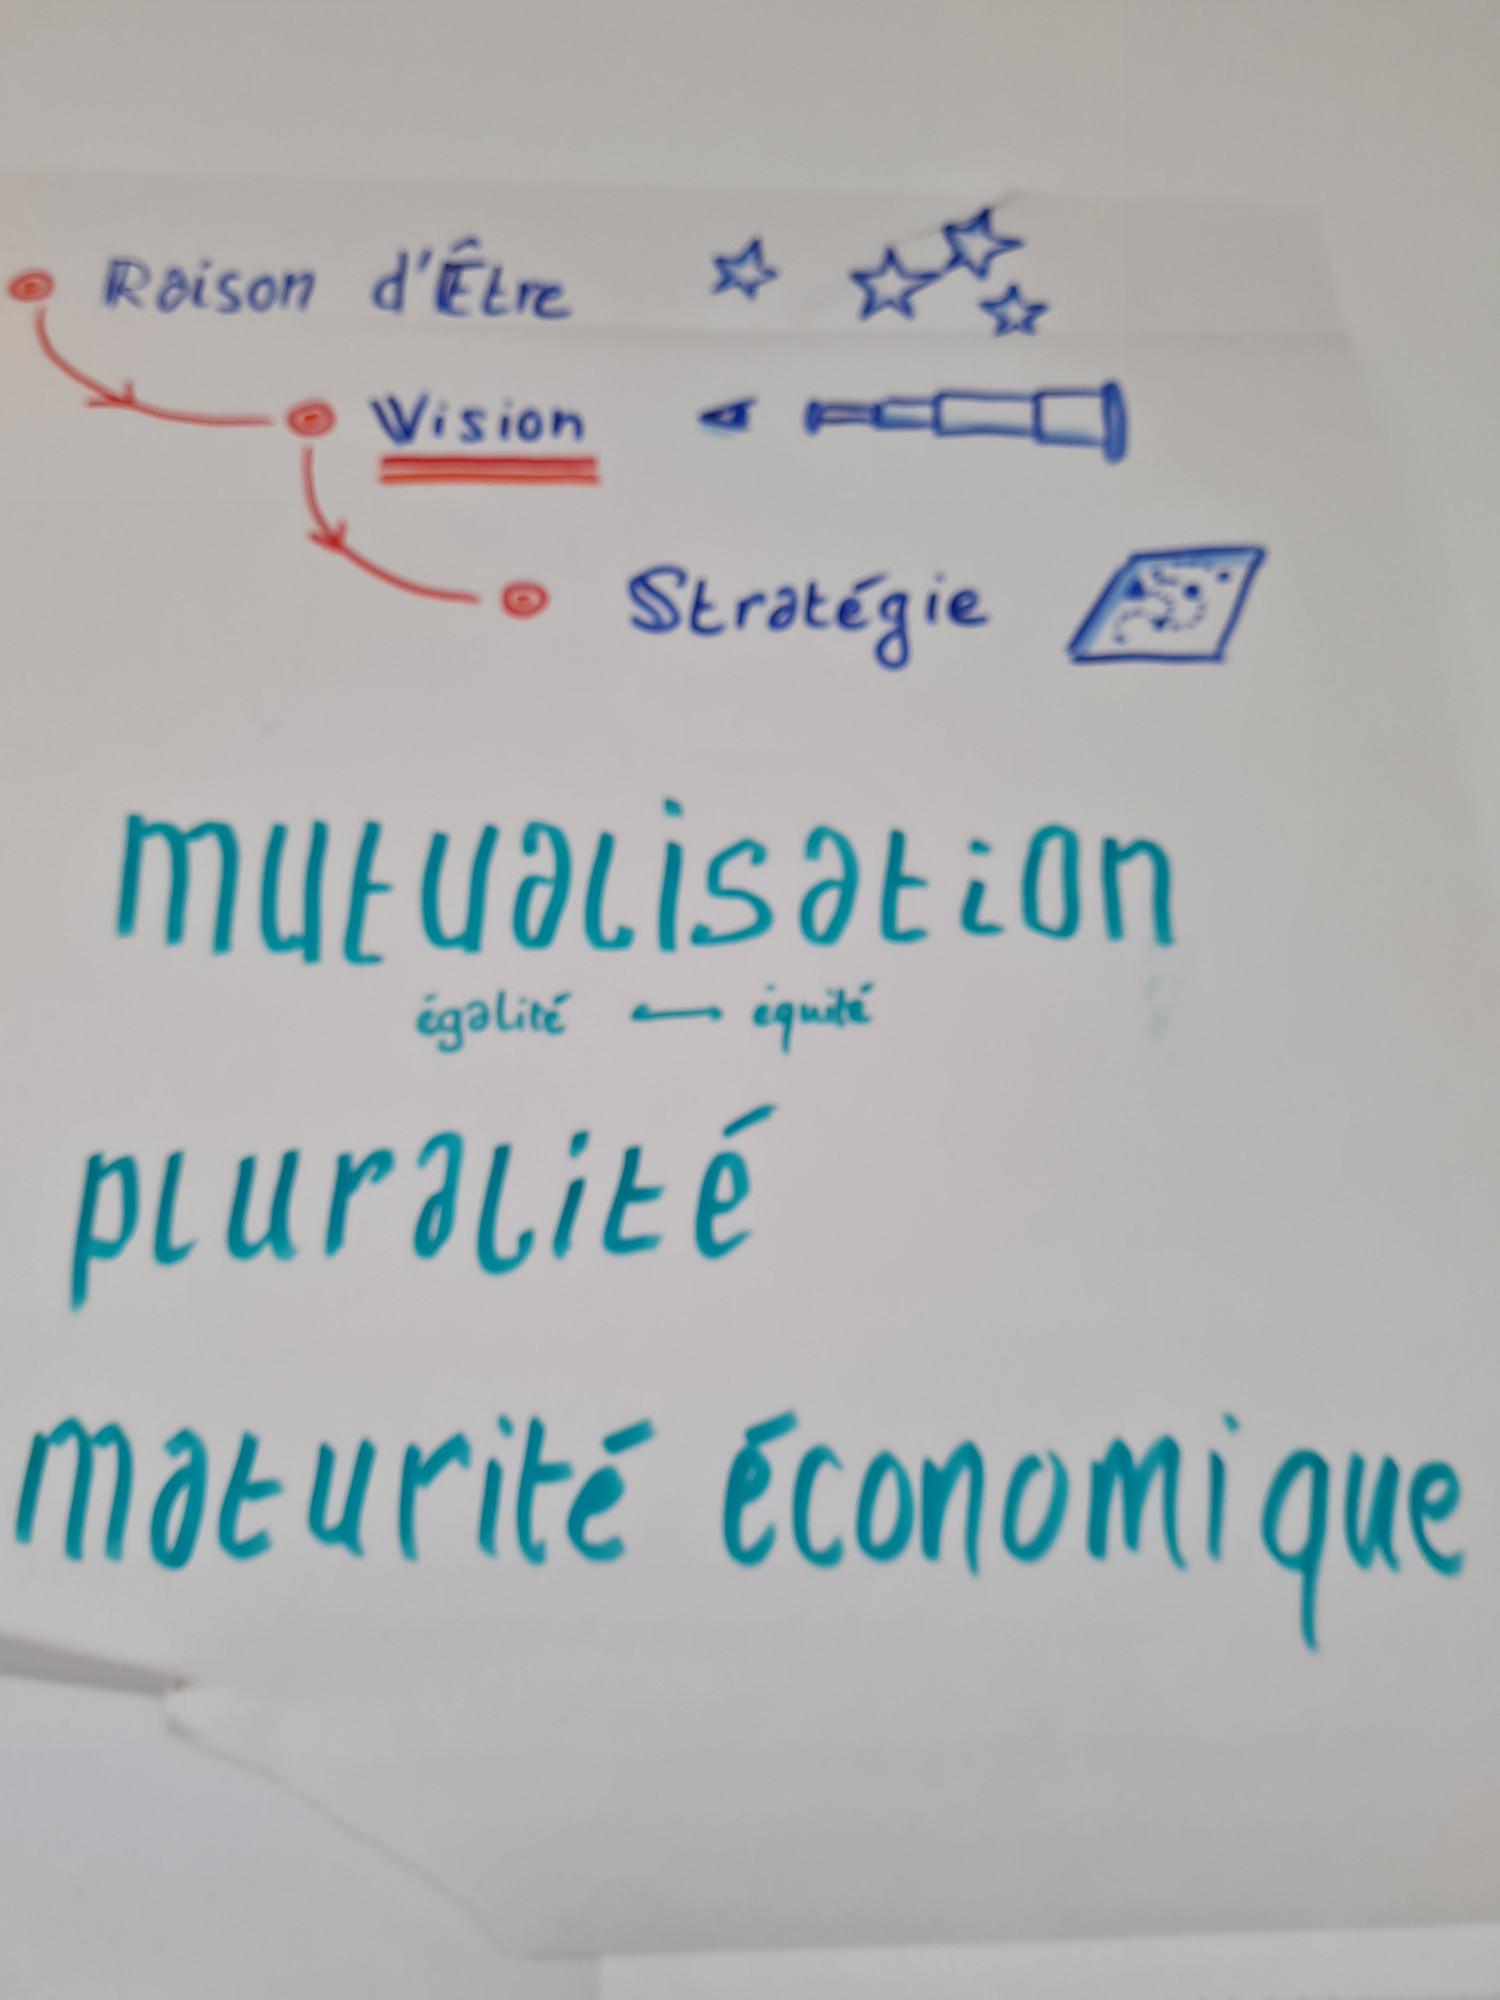 Raison d'Être
Vision
Stratégie
mutualisation
égalité ↔ équité
pluralité
maturité économique